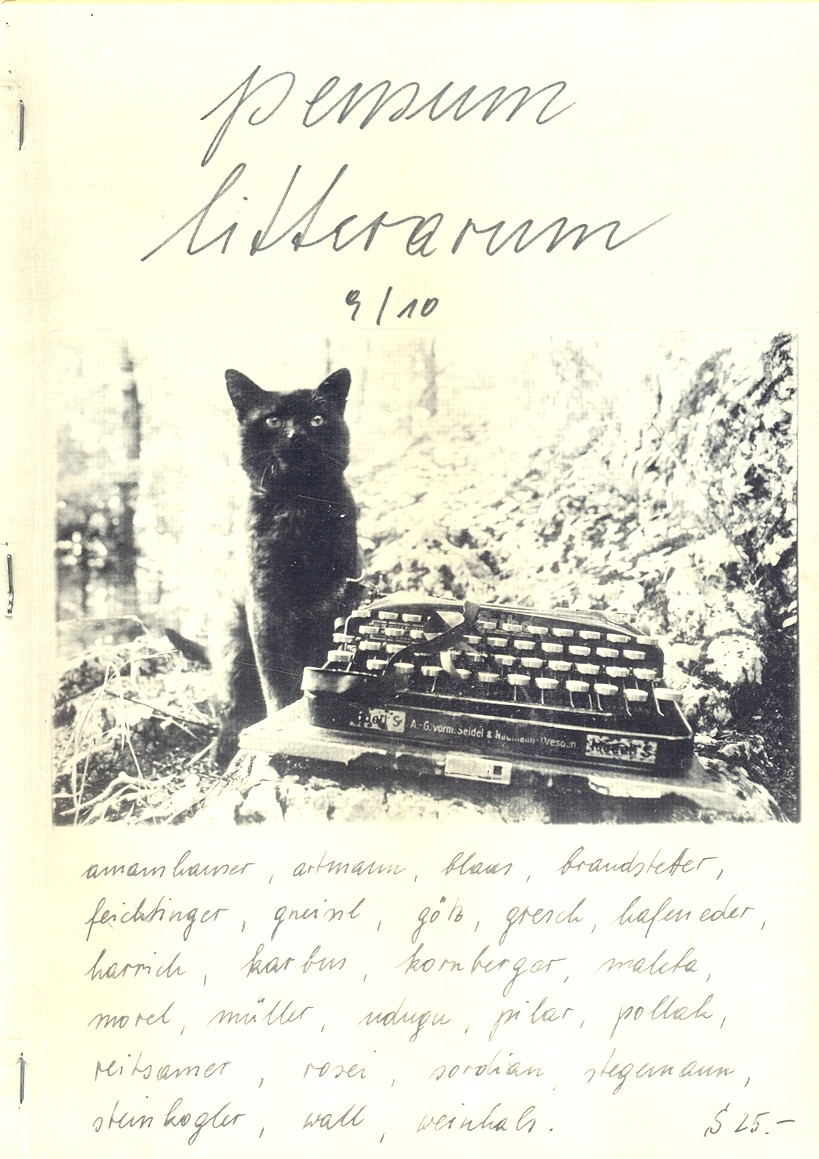 pensum
litterarum
9/10
A.-G. vorm. Seidel & Naumann-Dresden
amanshauser, artmann, blaas, brandstetter,
feichtinger, gneissl, götz, gresch, hafeneder,
harrich, karbus, kornberger, makta,
morel, müller, ndugu, pilar, pollak,
reitsamer, rosei, sordian, stegemann,
steinkogler, wall, weinhals. S 25.-